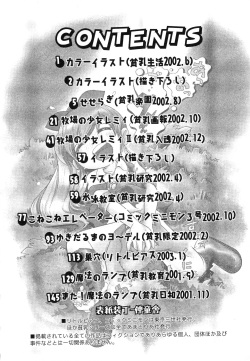 CONTENTS
1 カラーイラスト(貧乳生活2002.6)
2 カラーイラスト(描き下ろし)
5 せせらぎ(貧乳楽園2002.8)
21 牧場の少女レミィ(貧乳画報2002.10)
41 牧場の少女レミィII(貧乳入魂2002.12)
57 イラスト(描き下ろし)
58 イラスト(貧乳研究2002.4)
59 水泳教室(貧乳研究2002.4)
77 こねこねエレベーター(コミックミニモン3号2002.10)
93 ゆきだるまのヨ~デル(貧乳限定2002.2)
113 巣穴(リトルピアス2003.1)
129 魔法のランプ(貧乳教育2001.5)
145 また!魔法のランプ(貧乳日和2001.11)
■掲載されている全ての作品はフィクションでありあらゆる個人、団体ほか及び
事件などとは一切関係ありません。